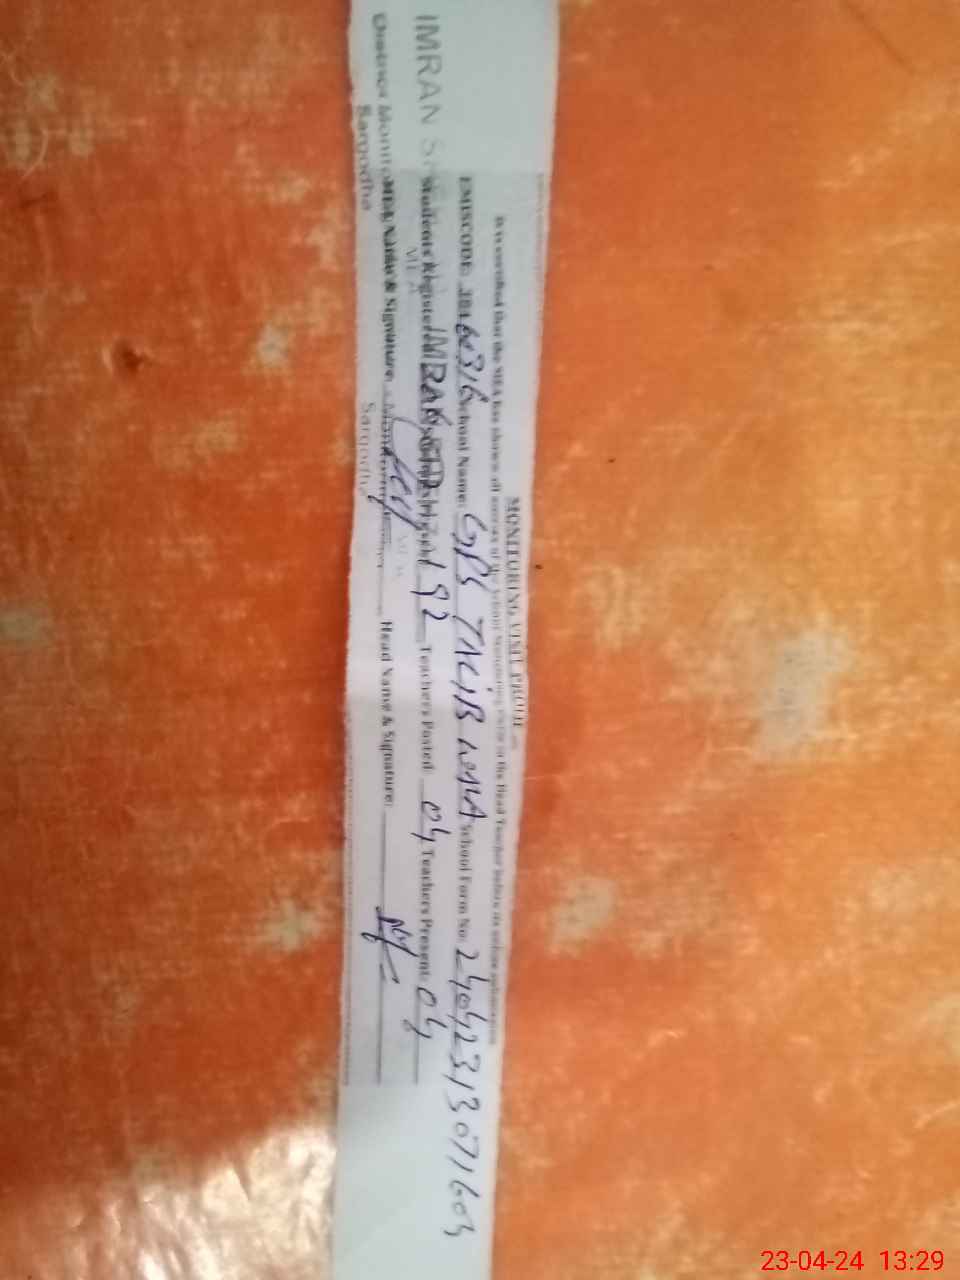 MONITORING VISIT PROOF
It is certified that the MEA has shown all entries of the School Monitoring Form to the Head Teacher before its online submission
EMISCODE: 38460316 School Name: GPS TALIB WALA School Form No: 24042313071603
Students Registered 192 Teachers Posted: 04 Teachers Present: 04
MEA Name & Signature: Head Name & Signature:
IMRAN
District Monitoring
Sargodha
MEA
IMRAN SHEHZAD
Monitoring
Sargodha
MEA
23-04-24 13:29